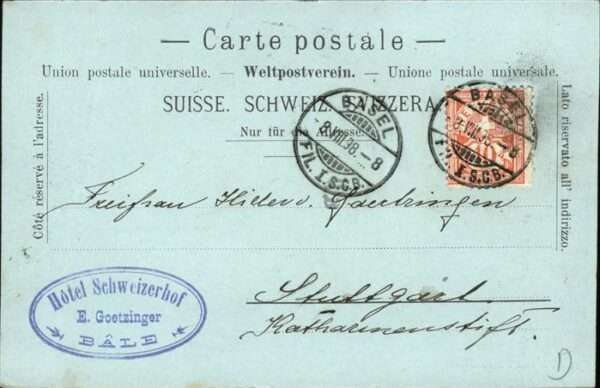 — Carte postale —
Union postale universelle. — Weltpostverein. — Unione postale universale.
SUISSE. SCHWEIZ. SVIZZERA.
Nur für die Adresse.
Côté réservé à l'adresse.
Lato riservato all' indirizzo.
BASEL
-8.VIII.98.-8
FIL. T.S.C.B.
BASEL
8.VIII.98.-8
FIL. T.S.C.B.
Freifrau Hiller v. Gaertringen
Stuttgart
Katharinenstift.
Hôtel Schweizerhof
E. Goetzinger
BÂLE
D